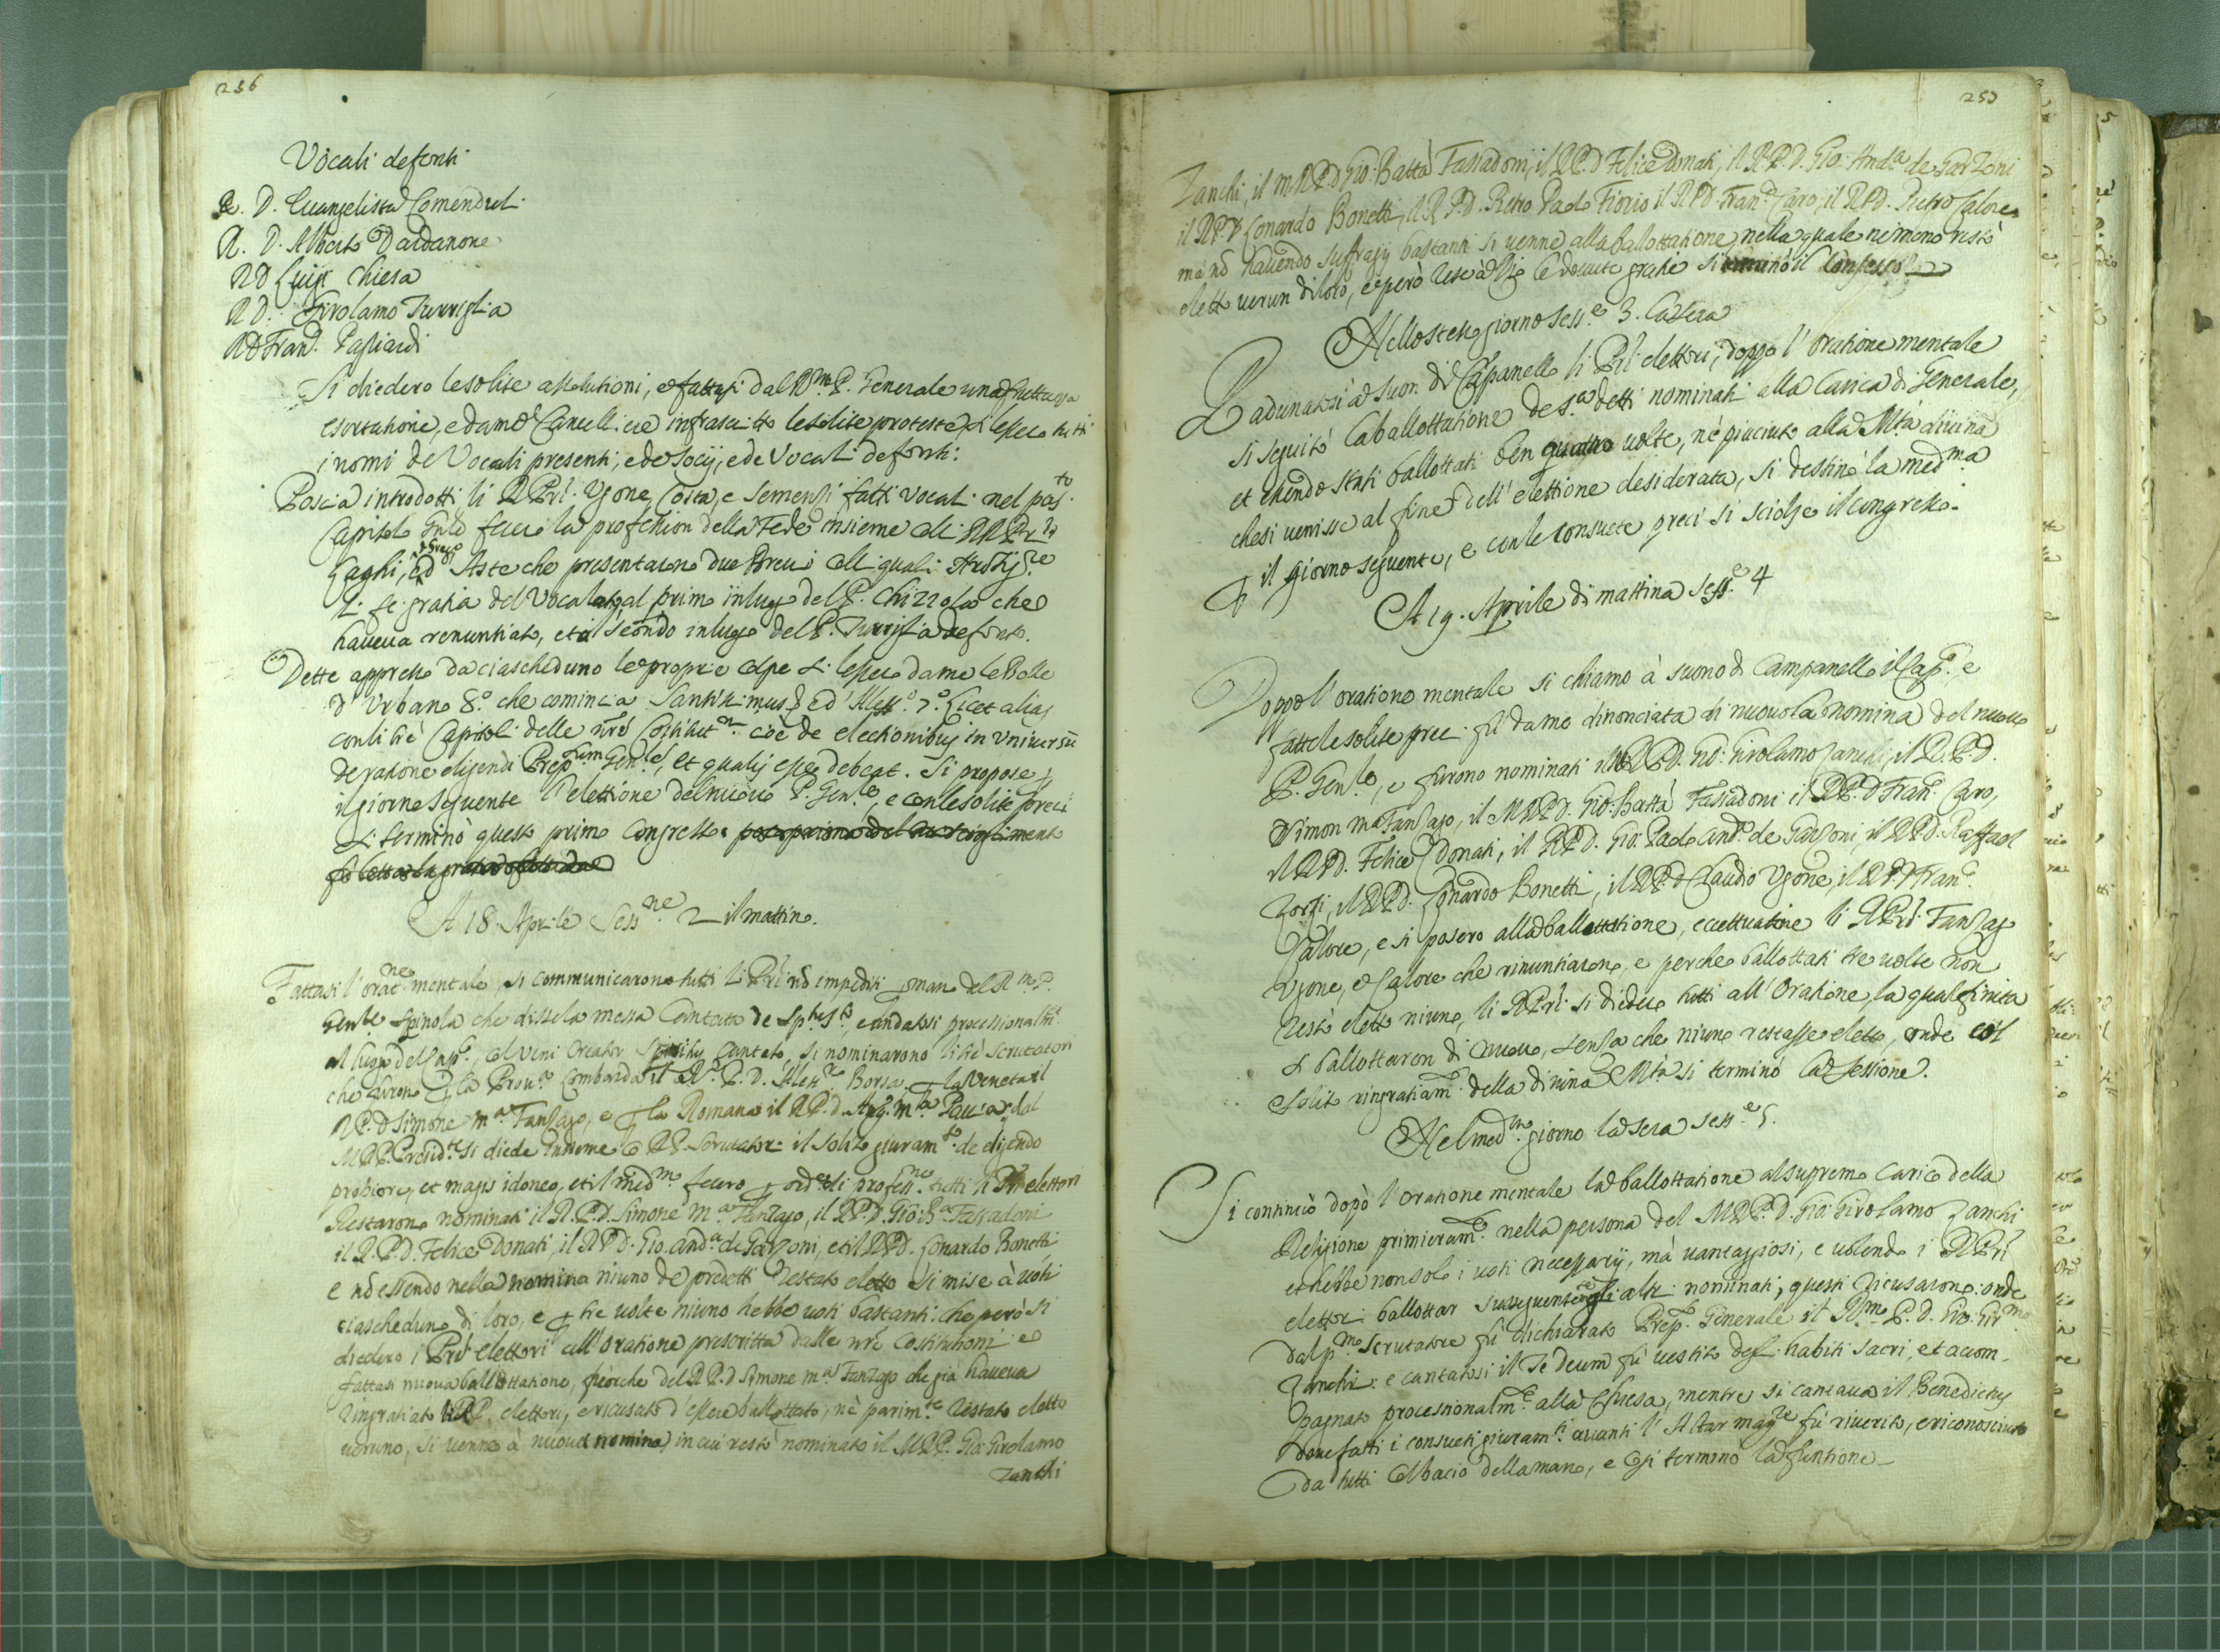 256
Vocali defonti
R. D. Euangelista Comenduli
R. D. Alberto Dardanone
R D Luigi Chiesa
R D. Girolamo Turriglia
R D Fran.º Pagliardi
Si diedero le solite assolutioni, e fattasi dal R.mo P. Generale una fruttuosa
esortatione, e da me Cancelliere infrascritto le solite proteste si lessero tutti
i nomi de Vocali presenti, e de Socij, e de Vocali defonti.
Poscia introdotti li RR Pri Ugone, Coita, e Semenzi fatti vocali nel pas.to
Capitolo Gnle fecero la professione della Fede insieme alli RR Pri
Gaghi, ed Aste che presentarono due Breui alli quali
si fe gratia del Vocalato, al primo in luogo del P. Chizzola che
haueua renuntiato, et il secondo in luogo del P. Turriglia defonto.
Dette appresso da ciascheduno le proprie colpe si lessero da me le Bolle
d'Urbano 8.º che comincia Sanctissimus, ed Aless.º 7.º Licet alias
con li trè Capitoli delle nre Costitut.ni cioè de electionibus in universũ
de ratione eligendi Prep.tum Gen.le, et qualis esse debeat. Si propose p
il giorno seguente l'elettione del nuouo P. Gen.le, e con le solite preci
si terminò questo primo Congresso.
A 18 Aprile Sess.ne 2 il mattino.
Fattasi l'orat.ne mentale, si communicarono tutti li Pri nõ impediti p mano del R.mo P.
Gen.le Spinola che disse la messa Cantata de Sp.tu S.to e andatosi processionalm.te
al luogo del Cap.º, col Veni Creator Spiritus Cantato, si nominarono li trè scrutatori
che furono p la Prou.a Lombarda il R. P. D. Aless.ro Borsa p la Veneta il
R P. D Simone m.a Fanzago, e p la Romana il R P. d. Aug. m.a Pauia; dal
M R P. Presid.te si diede insieme co RR Scrutatori il solito giuram.to de eligendo
probiore, et magis idoneo, et il med.mo fecero p ord.e di profess.ne tutti li Pri elettori
Restarono nominati il R. P. D. Simone m.a Fanzago, il R P. D. Gio: B.a Fassadoni
il R. P. D. Felice Donati, il R P D. Gio. And.a de Garzoni, et il R P D. Leonardo Bonetti
e nõ essendo nella nomina niuno de predetti restato eletto si mise à voti
ciascheduno di loro, e p tre volte niuno hebbe voti bastanti: che però si
diedero i Pri elettori all'oratione prescritta dalle nre Costitutioni e
fattasi nuoua ballottatione, fuorche del R P. D Simone m.a Fanzago che già haueua
ringratiato li RR P. elettori, e ricusato d'essere ballottato, nè parim.te restato eletto
ueruno, si uenne à nuoua nomina, in cui restò nominato il M R P. Gio: Girolamo
Zanchi
257
Zanchi, il m R P D Gio: Batta Fassadoni, il R P. D Felice Donati, il R. P. D. Gio: And.a de Garzoni
il R P. D Leonardo Bonetti, il R P. D. Pietro Paolo Fiorio il R P D. Fran.º Caro, il R P D. Pietro Calore
mà nõ hauendo suffragij bastanti si uenne alla ballottatione, nella quale nemeno restò
eletto uerun di loro, e però rese à Dio le douute gratie si terminò il Congresso
Nello stesso giorno Sess.e 3. la sera
Radunatosi à suon di Cãpanello li Pri elettori, doppo l'oratione mentale
si seguitò la ballottatione de s.a detti nominati alla Carica di Generale,
et essendo stati ballottati ben quattro uolte, nè piaciuto alla M.tà diuina
che si uenisse al fine dell'elettione desiderata, si destinò la med.ma
p il giorno seguente, e con le consuete preci si sciolse il congresso.
A 19. Aprile di mattina Sess.e 4
Doppo l'oratione mentale si chiamò à suono di Campanello il Cap.º e
fatte le solite preci fù da me dinonciata di nuouo la nomina del nuouo
P. Gen.le, e furono nominati il R P D. Gio: Girolamo Zanchi, il R. P. D.
Simon m.a Fanzago, il M R P D. Gio: Batta Fassadoni il R P. D Fran.º Caro,
il R P D. Felice Donati, il R P D. Gio: Paolo And.a de Garzoni, il R P D. Raffael
Zorzi, il R P D. Leonardo Bonetti, il R P. D Claudio Ugone, il R P D Fran.º
Calore, e si posero alla ballottatione, eccettuatine li R Pri Fanzago
Ugone, e Calore che rinuntiarono, e perche ballottati tre uolte non
restò eletto niuno, li R Pri si diedero tutti all'oratione, la qual finita
si ballottaron di nuouo, senza che niuno restasse eletto, onde col
solito ringratiam.to della diuina M.tà si terminò la Sessione.
Nel med.mo giorno la sera Sess.e 5.
Si continuò dopò l'oratione mentale la ballottatione al supremo Carico della
Religione primieram.te nella persona del M R P. D. Gio: Girolamo Zanchi
et hebbe non solo i uoti necessarij, mà uantaggiosi, e uolendo i R Pri
elettori ballottar susseguentem.te gli altri nominati, questi ricusarono: onde
dal p.mo Scrutatore fù dichiarato Prep.to Generale il R.mo P. D. Gio: Gir.mo
Zanchi: e cantatosi il Te Deum fù uestito degl'habiti sacri, et accom-
pagnato processionalm.te alla Chiesa, mentre si cantaua il Benedictus
doue fatti i consueti giuram.ti auanti l'Altar mag.re fù riuerito, e riconosciuto
da tutti col bacio della mano, e così terminò la funtione